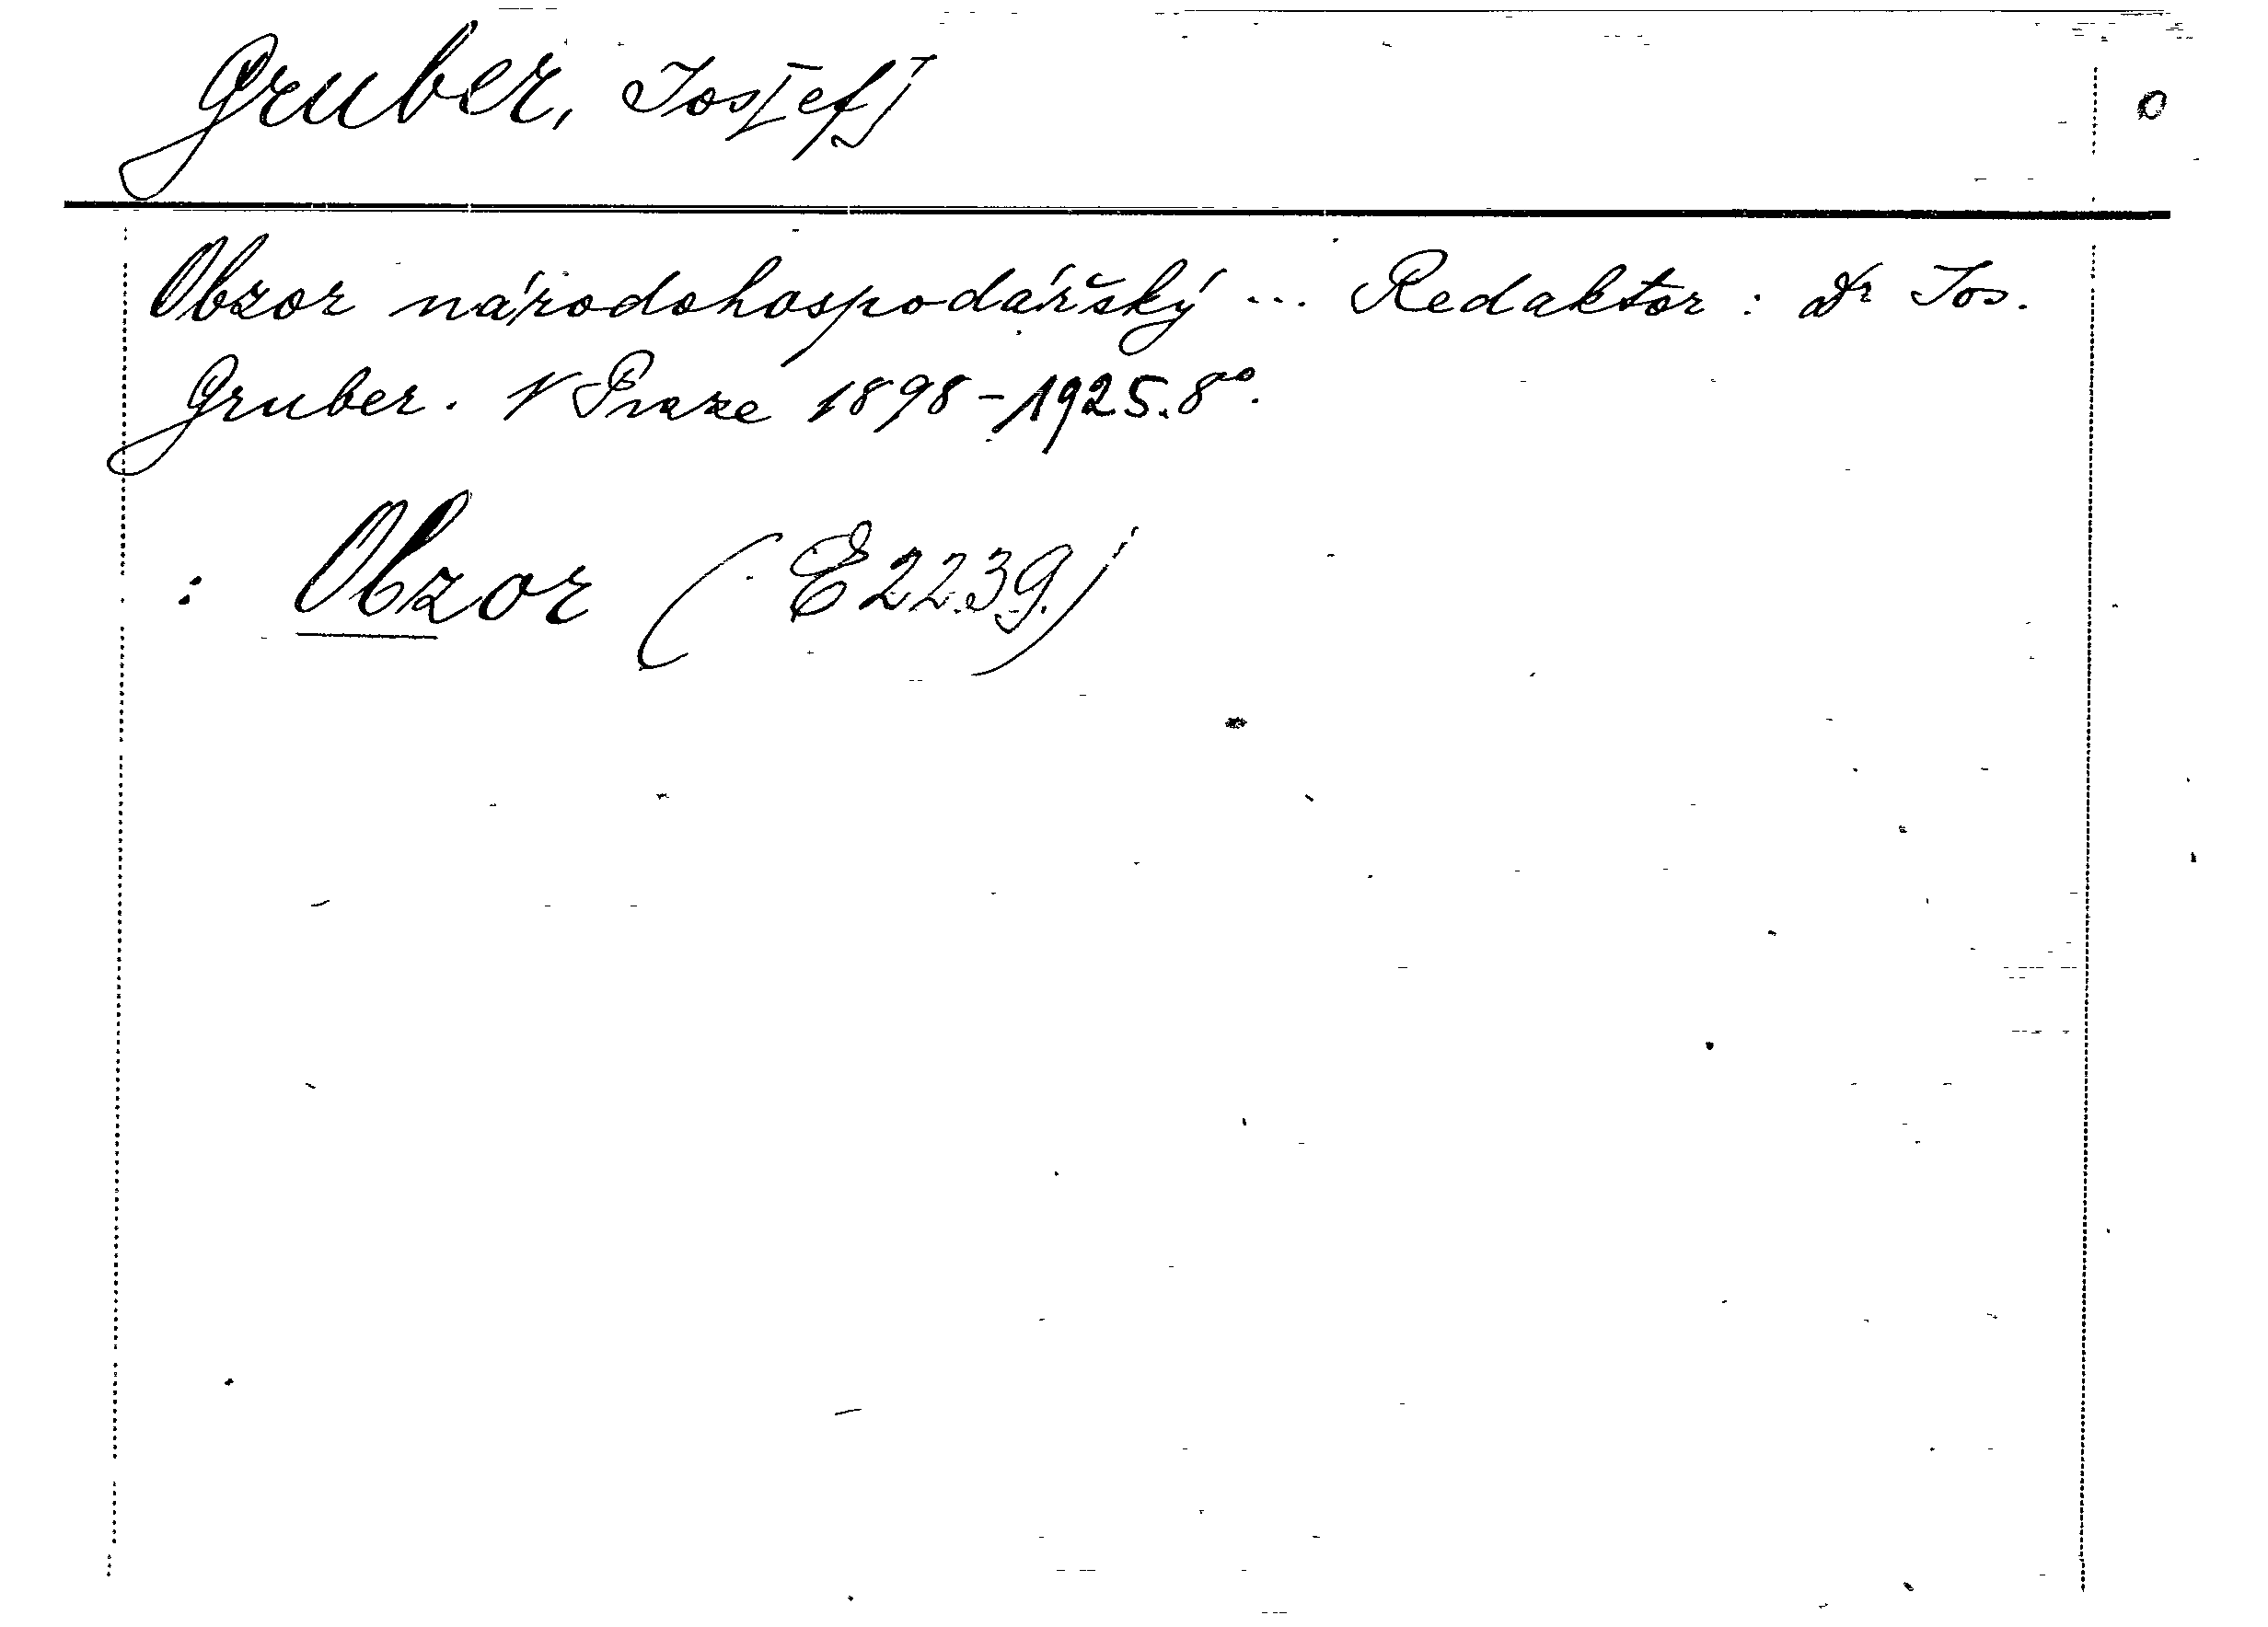 Gruber, Jos[ef] O
Obzor národohospodářský ... Redaktor: Dr Jos.
Gruber. V Praze 1898-1925. 8°.
: Obzor (E2239)